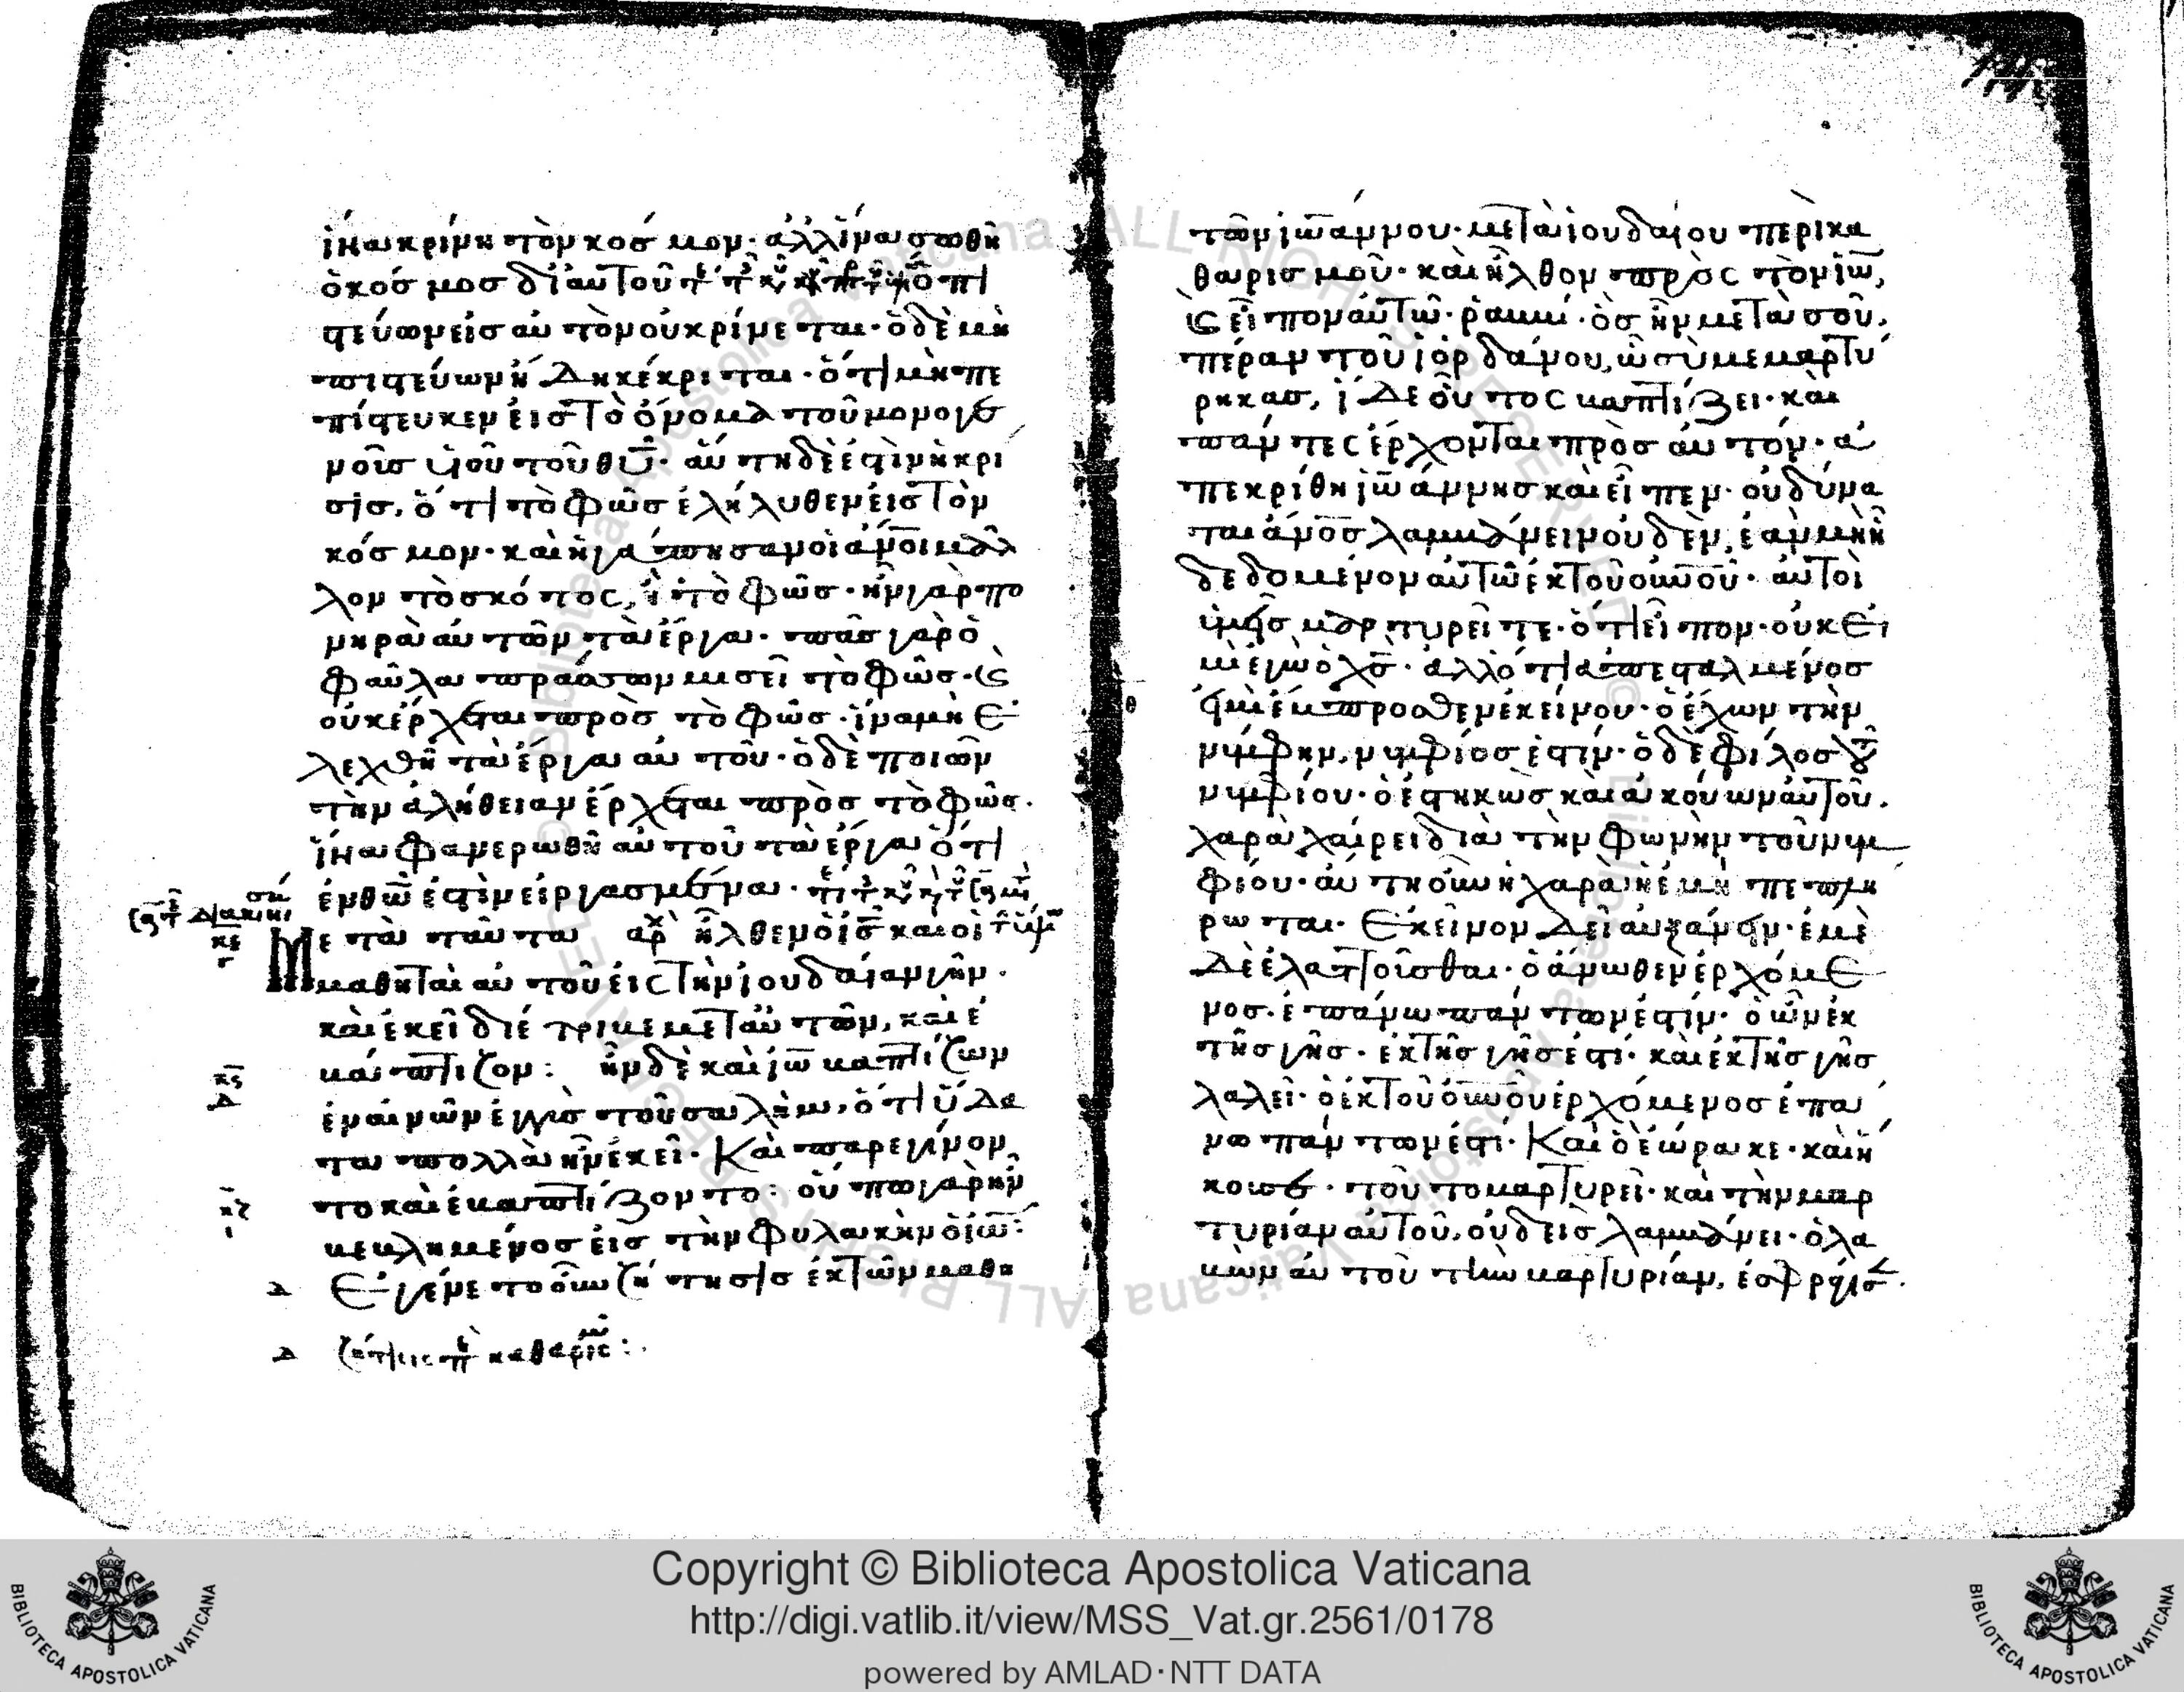 ἵνα κρίνη τὸν κόσμον· ἀλλ' ἵνα σωθῆ
ὁ κόσμος δι' αὐτοῦ ὁ πι
στεύων εἰς αὐτὸν οὐ κρίνεται· ὁ δὲ μὴ
πιστεύων ἤδη κέκριται· ὅτι μὴ πε
πίστευκεν εἰς τὸ ὄνομα τοῦ μονογε
νοῦς υἱοῦ τοῦ θυ· αὕτη δὲ ἐστὶν ἡ κρί
σις, ὅτι τὸ φῶς ἐλήλυθεν εἰς τὸν
κόσμον· καὶ ἠγάπησαν οἱ ἄνοι μᾶλ
λον τὸ σκότος, ἢ τὸ φῶς· ἦν γὰρ πο
νηρὰ αὐτῶν τὰ ἔργα· πᾶς γὰρ ὁ
φαῦλα πράσσων μισεῖ τὸ φῶς· καὶ
οὐκ ἔρχεται πρὸς τὸ φῶς· ἵνα μὴ ἐ
λεχθῆ τὰ ἔργα αὐτοῦ· ὁ δὲ ποιῶν
τὴν ἀλήθειαν ἔρχεται πρὸς τὸ φῶς·
ἵνα φανερωθῆ αὐτοῦ τὰ ἔργα ὅτι
ἐν θω ἐστὶν εἰργασμένα·
Μετὰ ταῦτα αρχ ἦλθεν ὁ ις καὶ οἱ
μαθηταὶ αὐτοῦ εἰς τὴν ἰουδαίαν γῆν·
καὶ ἐκεῖ διέτριβε μετ' αὐτῶν, καὶ ἐ
βάπτιζον: ἦν δὲ καὶ ἰω βαπτίζων
ἐν αἰνῶν ἐγγὺς τοῦ σαλὴμ, ὅτι ὕδα
τα πολλὰ ἦν ἐκεῖ· Καὶ παρεγίνον
το καὶ ἐβαπτίζοντο: οὔπω γὰρ ἦν
βεβλημένος εἰς τὴν φυλακὴν ὁ ἰω:
Ἐγένετο οὖν ζήτησις ἐκ τῶν μαθη
τῶν ἰωάννου· μετὰ ἰουδαίου περὶ κα
θαρισμοῦ· καὶ ἦλθον πρὸς τὸν ἰω,
καὶ εἶπον αὐτῶ· ῥαββί· ὃς ἦν μετὰ σοῦ,
πέραν τοῦ ἰορδάνου, ὧ σὺ μεμαρτύ
ρηκας, ἴδε οὗτος βαπτίζει· καὶ
πάντες ἔρχονται πρὸς αὐτόν· ἀ
πεκρίθη ἰωάννης καὶ εἶπεν· οὐ δύνα
ται ἄνος λαμβάνειν οὐδὲν, ἐὰν μὴ ἦ
δεδομένον αὐτῶ ἐκ τοῦ οὐνοῦ· αὐτοὶ
ὑμεῖς μαρτυρεῖτε· ὅτι εἶπον· οὐκ εἰ
μὶ ἐγὼ ὁ χς· ἀλλ' ὅτι ἀπεσταλμένος
εἰμὶ ἔμπροσθεν ἐκείνου· ὁ ἔχων τὴν
νύμφην, νυμφίος ἐστίν· ὁ δὲ φίλος τοῦ
νυμφίου· ὁ ἑστηκὼς καὶ ἀκούων αὐτοῦ,
χαρᾶ χαίρει διὰ τὴν φωνὴν τοῦ νυμ
φίου· αὕτη οὖν ἡ χαρὰ ἡ ἐμὴ πεπλή
ρωται· Ἐκεῖνον δεῖ αὐξάνειν· ἐμὲ
δὲ ἐλαττοῦσθαι· ὁ ἄνωθεν ἐρχόμε
νος· ἐπάνω πάντων ἐστίν· ὁ ὢν ἐκ
τῆς γῆς· ἐκ τῆς γῆς ἐστι· καὶ ἐκ τῆς γῆς
λαλεῖ· ὁ ἐκ τοῦ οὐνοῦ ἐρχόμενος ἐπά
νω πάντων ἐστι· Καὶ ὃ ἑώρακε· καὶ ἤ
κουσε· τοῦτο μαρτυρεῖ· καὶ τὴν μαρ
τυρίαν αὐτοῦ, οὐδεὶς λαμβάνει· ὁ λα
βὼν αὐτοῦ τὴν μαρτυρίαν, ἐσφράγισ
Copyright © Biblioteca Apostolica Vaticana
http://digi.vatlib.it/view/MSS_Vat.gr.2561/0178
powered by AMLAD·NTT DATA
BIBLIOTECA APOSTOLICA VATICANA
BIBLIOTECA APOSTOLICA VATICANA